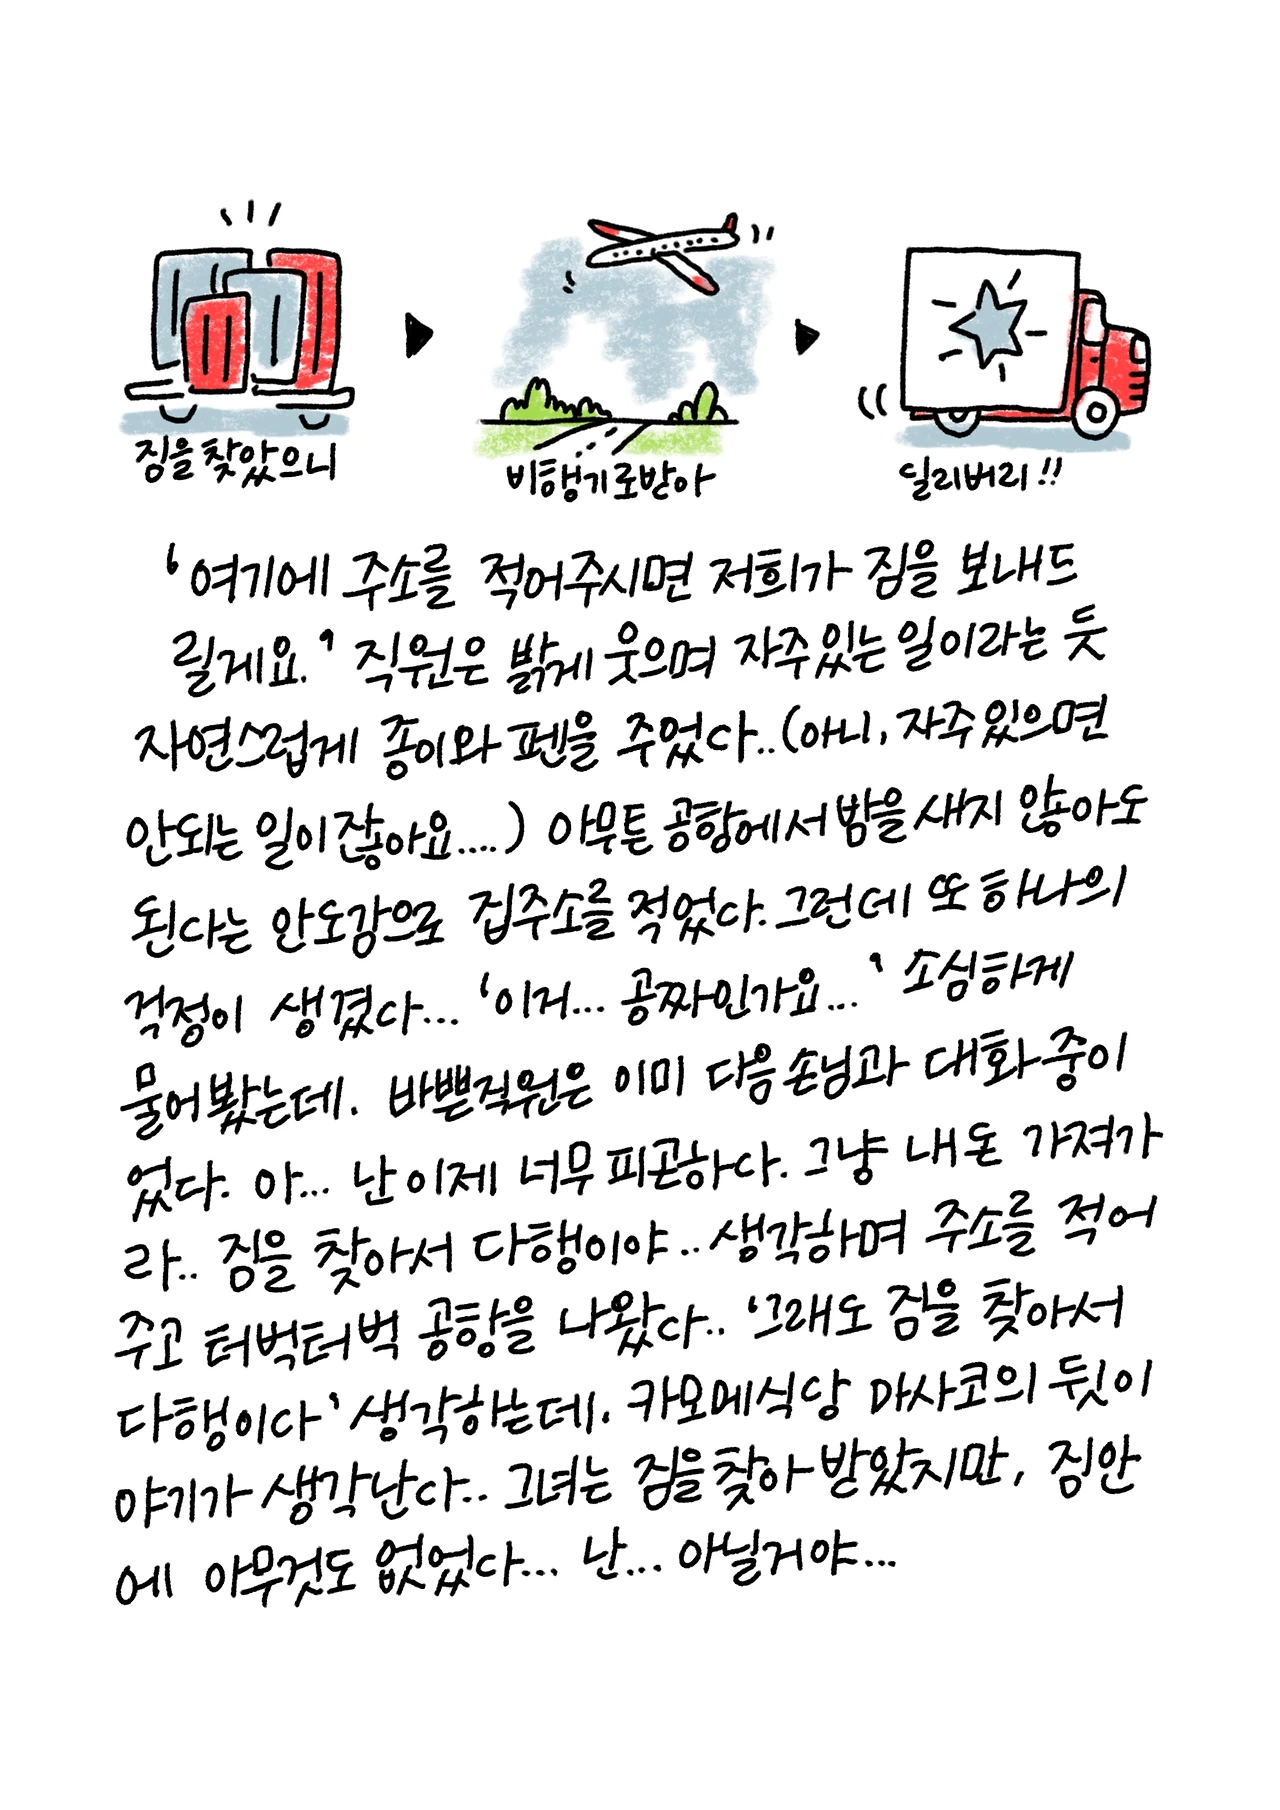 짐을 찾았으니
비행기로 받아
딜리버리!!
‘여기에 주소를 적어주시면 저희가 짐을 보내드
릴게요.’ 직원은 밝게 웃으며 자주 있는 일이라는 듯
자연스럽게 종이와 펜을 주었다..(아니, 자주 있으면
안되는 일이잖아요....) 아무튼 공항에서 밤을 새지 않아도
된다는 안도감으로 집주소를 적었다. 그런데 또 하나의
걱정이 생겼다... ‘이거... 공짜인가요...’ 소심하게
물어봤는데. 바쁜직원은 이미 다음 손님과 대화중이
었다. 아... 난 이제 너무 피곤하다. 그냥 내 돈 가져가
라.. 짐을 찾아서 다행이야.. 생각하며 주소를 적어
주고 터벅터벅 공항을 나왔다.. ‘그래도 짐을 찾아서
다행이다’ 생각하는데. 카모메식당 마사코의 뒷이
야기가 생각난다.. 그녀는 짐을 찾아 받았지만, 짐안
에 아무것도 없었다... 난... 아닐거야...